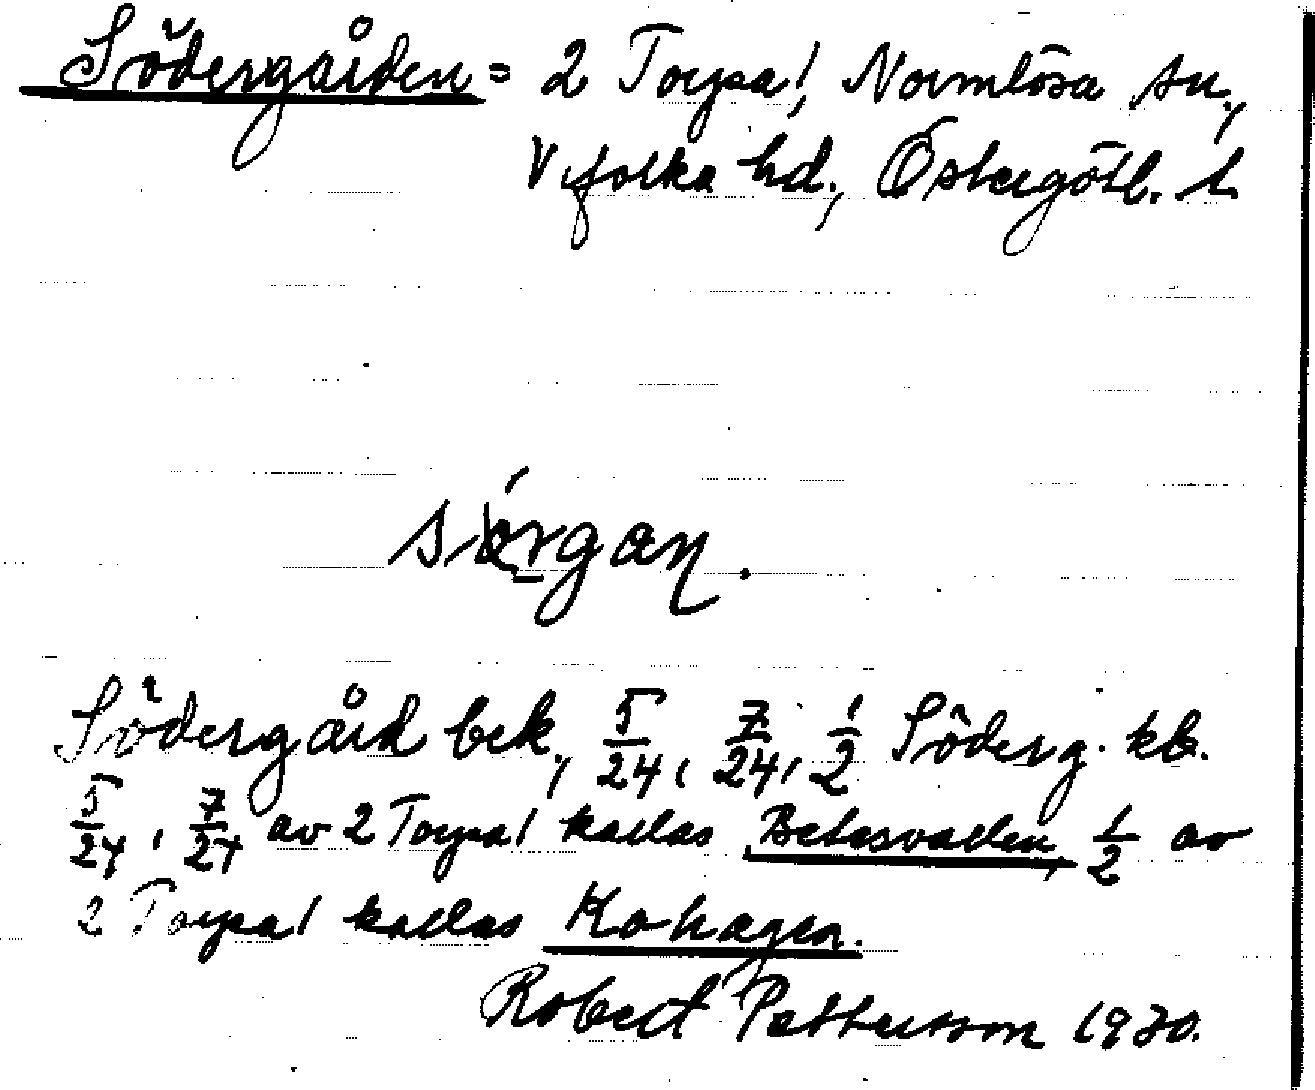 Södergården = 2 Torpa!, Normlösa sn,
Vifolka hd., Östergötl. l.
sörgaɳ.
Södergård bek, 5/24, 7/24, 1/2 Söderg. kb.
5/24, 7/24 av 2 Torpa! kallas Betesvallen, 1/2 av
2 Torpa! kallas Kohagen.
Robert Pettersson 1930.